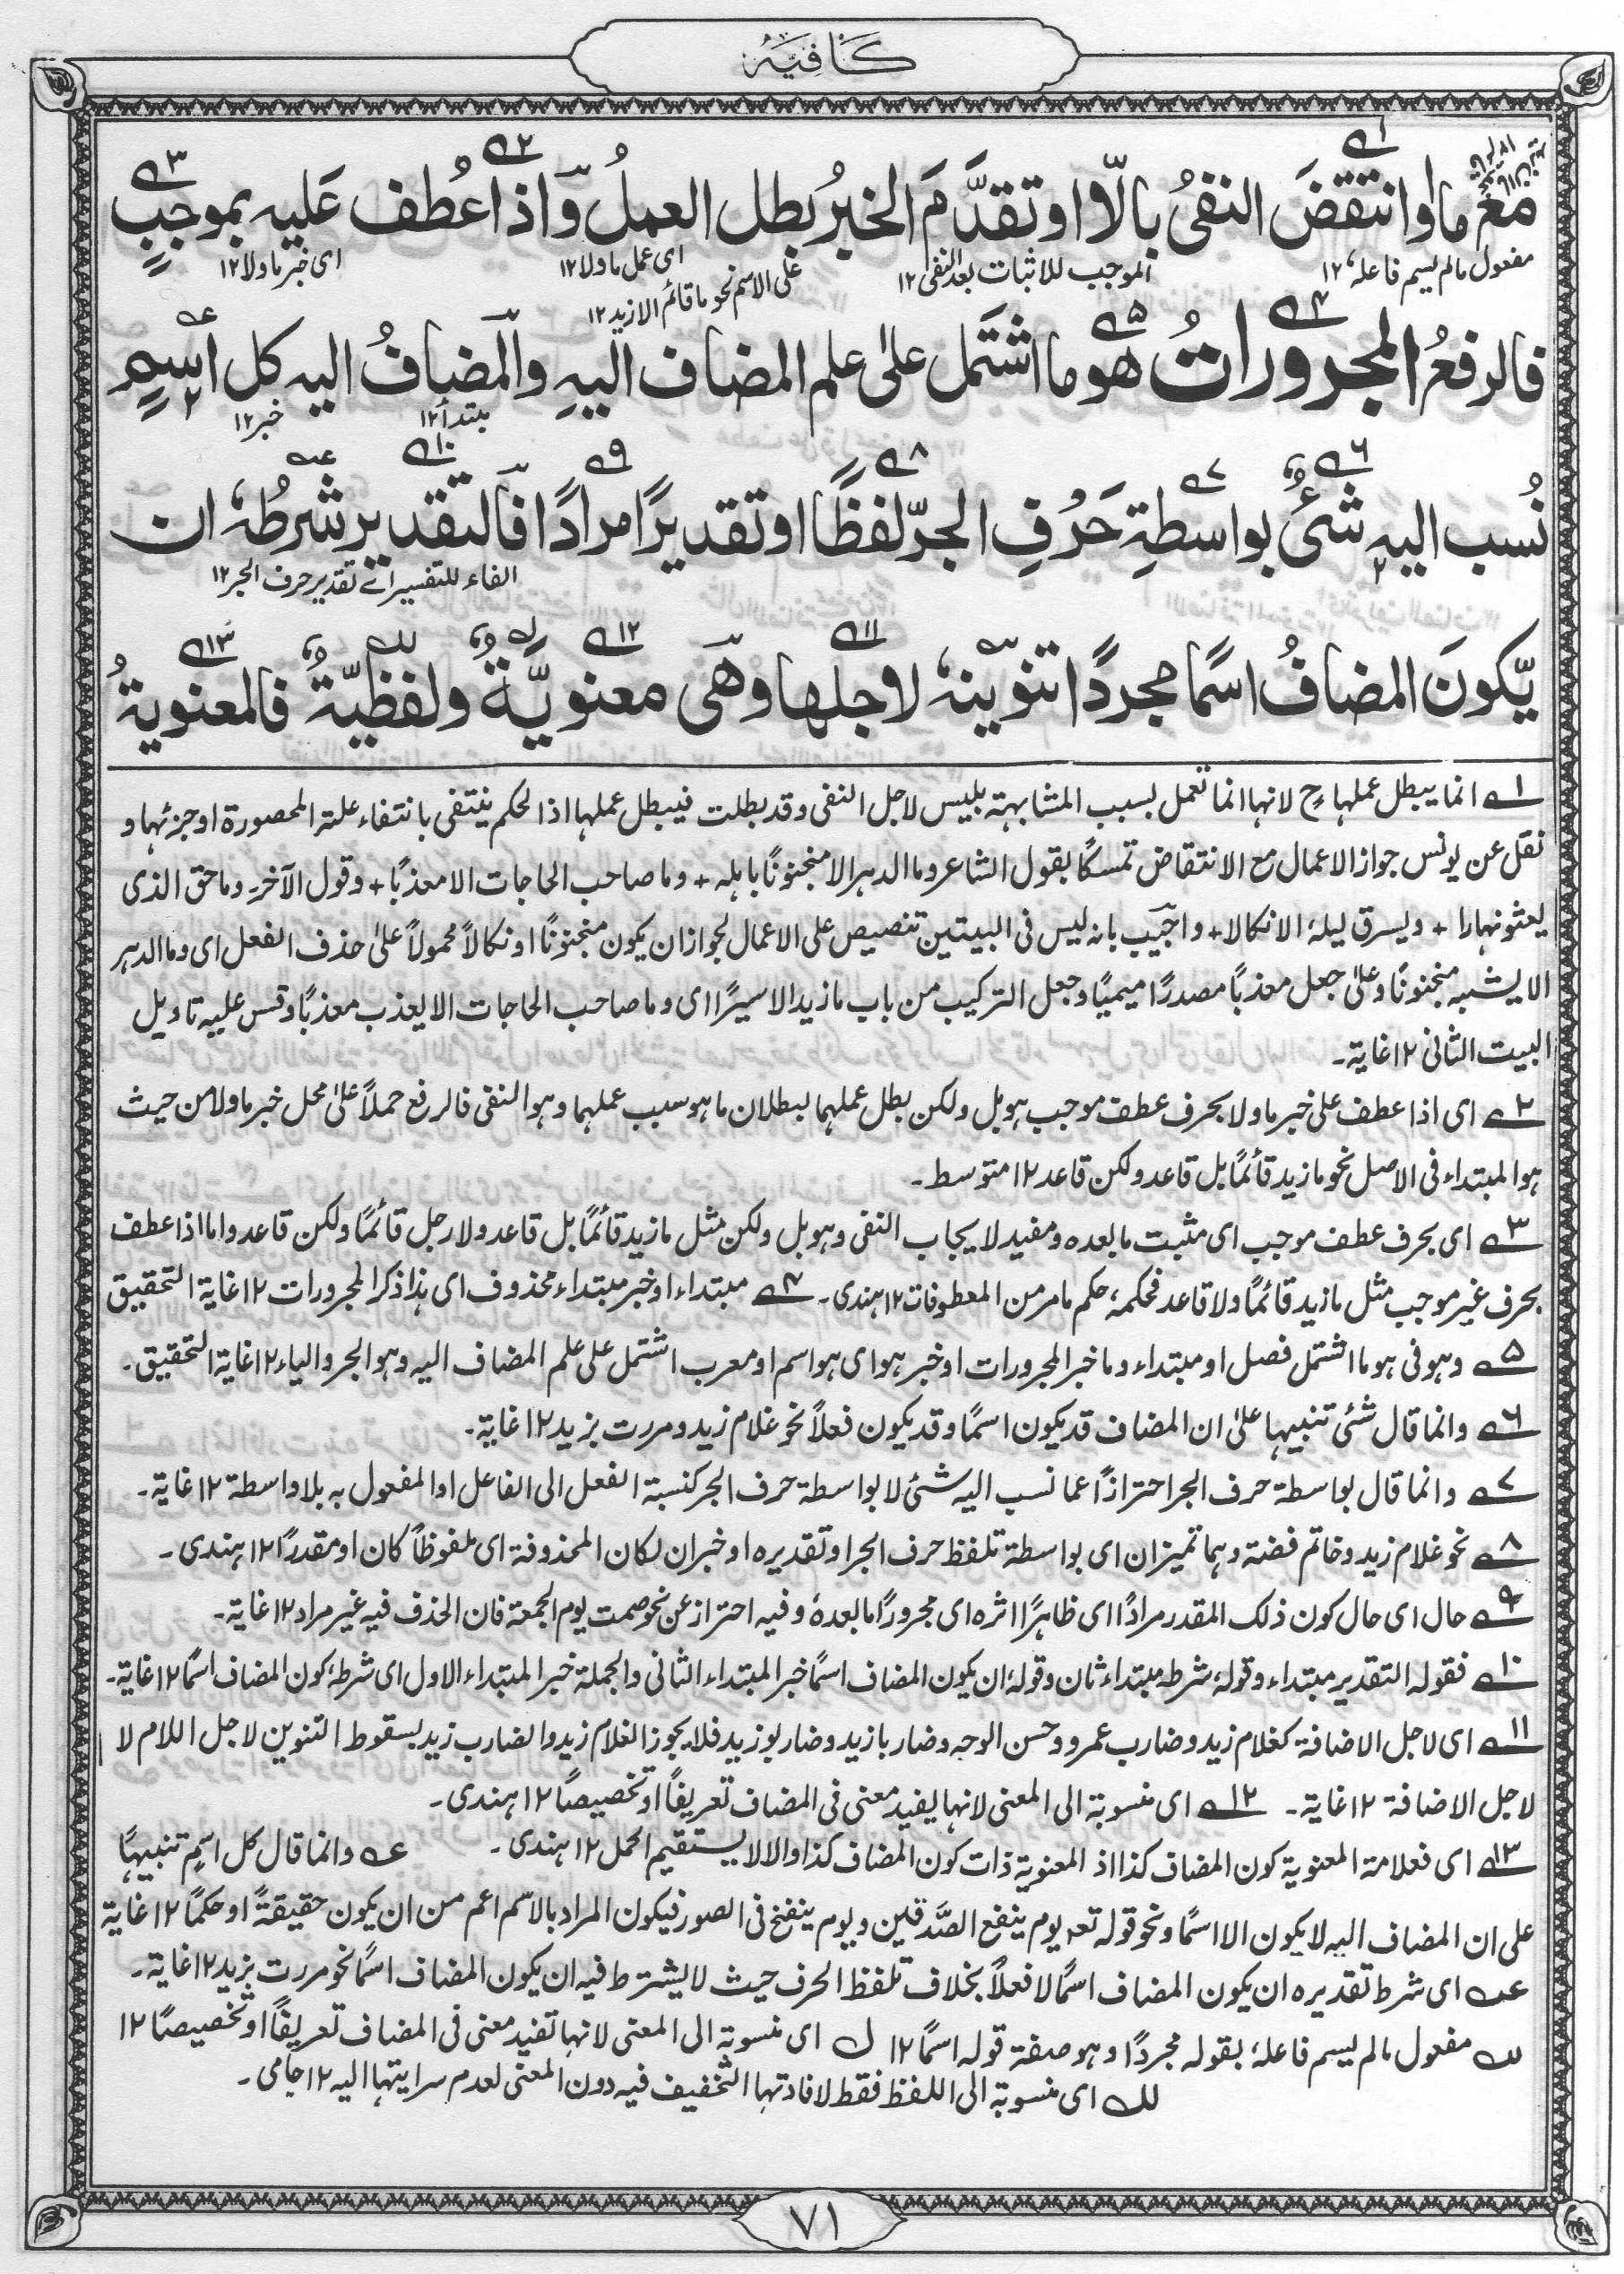 كَافِيَه
مَعَ ما او انتقضَ النفىُ بالّا او تقدَّمَ الخبرُ بطل العملُ واذا عُطف عَليه بموجِبٍ
مفعول مالم يسم فاعله ١٢
الموجب للاثبات بعد النفى ١٢
على الاسم نحو ما قائم الا زيد ١٢
اى عمل ما ولا ١٢
اى خبر ما ولا ١٢
فالرفعُ المجروراتُ هو ما اشتَمل علىٰ علم المضاف اليهِ والمضافُ اليه كل اسمٍ
مبتدأ ١٢
خبر ١٢
نُسب اليه شئٌ بواسطةِ حَرْفِ الجرّ لفظًا او تقديرًا مرادًا فالتقدير شرطُهٗ ان
الفاء للتفسير اے تقدير حرف الجر ١٢
يّكونَ المضافُ اسمًا مجردًا تنوينهٗ لاجلها وهى معنويَّةٌ ولفظيّةٌ فالمعنويةُ
١ انما يبطل عملها ح لانها انما تعمل بسبب المشابهة بليس لاجل النفى وقد بطلت فيبطل عملها اذ الحكم ينتفى بانتفاء علته المحصورة او جزئها و
نقل عن يونس جواز الاعمال مع الانتقاض تمسكًا بقول الشاعر وما الدهر الا منجنونًا باهله + وما صاحب الحاجات الا معذبًا + وقول الآخر وما حق الذى
يعثو نهارا + ويسرق ليلهٗ الا نكالا + واجيب بانه ليس فى البيتين تنصيص على الاعمال لجواز ان يكون منجنونًا او نكالاً محمولاً علىٰ حذف الفعل اى وما الدهر
الا يشبه منجنونًا وعلىٰ جعل معذبًا مصدرًا ميميًا وجعل التركيب من باب ما زيد الا سيرًا اى وما صاحب الحاجات الا يعذب معذبًا وقس عليه تاويل
البيت الثانى ١٢ غاية۔
٢ اى اذا عطف على خبر ما ولا بحرف عطف موجب هو بل ولكن بطل عملهما لبطلان ما هو سبب عملهما وهو النفى فالرفع حملاً علىٰ محل خبر ما ولا من حيث
هو المبتداء فى الاصل نحو ما زيد قائمًا بل قاعد ولكن قاعد ١٢ متوسط۔
٣ اى بحرف عطف موجب اى مثبت ما بعده ومفيد لايجاب النفى وهو بل ولكن مثل ما زيد قائمًا بل قاعد ولا رجل قائمًا ولكن قاعد واما اذا عطف
بحرف غير موجب مثل ما زيد قائمًا ولا قاعد فحكمهٗ حكم ما مر من المعطوفات ١٢ هندى۔ ٤ مبتداء او خبر مبتداء محذوف اى هذا ذكر المجرورات ١٢ غاية التحقيق
٥ وهو فى هو ما اشتمل فصل او مبتداء وما خبر المجرورات او خبر هو اى هو اسم او معرب اشتمل على علم المضاف اليه وهو الجر والياء ١٢ غاية التحقيق۔
٦ وانما قال شئ تنبيها علىٰ ان المضاف قد يكون اسمًا وقد يكون فعلاً نحو غلام زيد ومررت بزيد ١٢ غاية۔
٧ وانما قال بواسطة حرف الجر احترازًا عما نسب اليه شئ لا بواسطة حرف الجر كنسبة الفعل الى الفاعل او المفعول به بلا واسطة ١٢ غاية۔
٨ نحو غلام زيد وخاتم فضة وهما تميزان اى بواسطة تلفظ حرف الجر او تقديره او خبران لكان المحذوفة اى ملفوظًا كان او مقدرًا ١٢ هندى۔
٩ حال اى حال كون ذلك المقدر مرادًا اى ظاهرًا اثره اى مجرورًا ما بعدهٗ وفيه احتراز عن نحو صمت يوم الجمعة فان الحذف فيه غير مراد ١٢ غاية۔
١٠ فقوله التقدير مبتداء وقولهٗ شرطه مبتداء ثان وقولهٗ ان يكون المضاف اسمًا خبر المبتداء الثانى والجملة خبر المبتداء الاول اى شرطهٗ كون المضاف اسمًا ١٢ غاية۔
١١ اى لاجل الاضافة كغلام زيد وضارب عمرو وحسن الوجه وضاربا زيد وضاربو زيد فلا يجوز الغلام زيد والضارب زيد بسقوط التنوين لاجل اللام لا
لاجل الاضافة ١٢ غاية۔ ١٢ اى منسوبة الى المعنى لانها يفيد معنى فى المضاف تعريفًا او تخصيصًا ١٢ هندى۔
١٣ اى فعلامة المعنوية كون المضاف كذا اذ المعنوية ذات كون المضاف كذا والا لا يستقيم الحمل ١٢ هندى۔ عـ وانما قال كل اسمٍ تنبيهًا
على ان المضاف اليه لا يكون الا اسمًا ونحو قوله تعـ يوم ينفع الصّٰدقين ويوم ينفخ فى الصور فيكون المراد بالاسم اعم من ان يكون حقيقةً او حكمًا ١٢ غاية
عـ اى شرط تقديره ان يكون المضاف اسمًا لا فعلاً بخلاف تلفظ الحرف حيث لا يشترط فيه ان يكون المضاف اسمًا نحو مررت بزيد ١٢ غاية۔
لـ مفعول مالم يسم فاعلهٗ بقوله مجردًا وهو صفة قوله اسمًا ١٢ ل اى منسوبة الى المعنى لانها تفيد معنى فى المضاف تعريفًا او تخصيصًا ١٢
لل اى منسوبة الى اللفظ فقط لافادتها التخفيف فيه دون المعنى لعدم سرايتها اليه ١٢ جامى۔
٧١